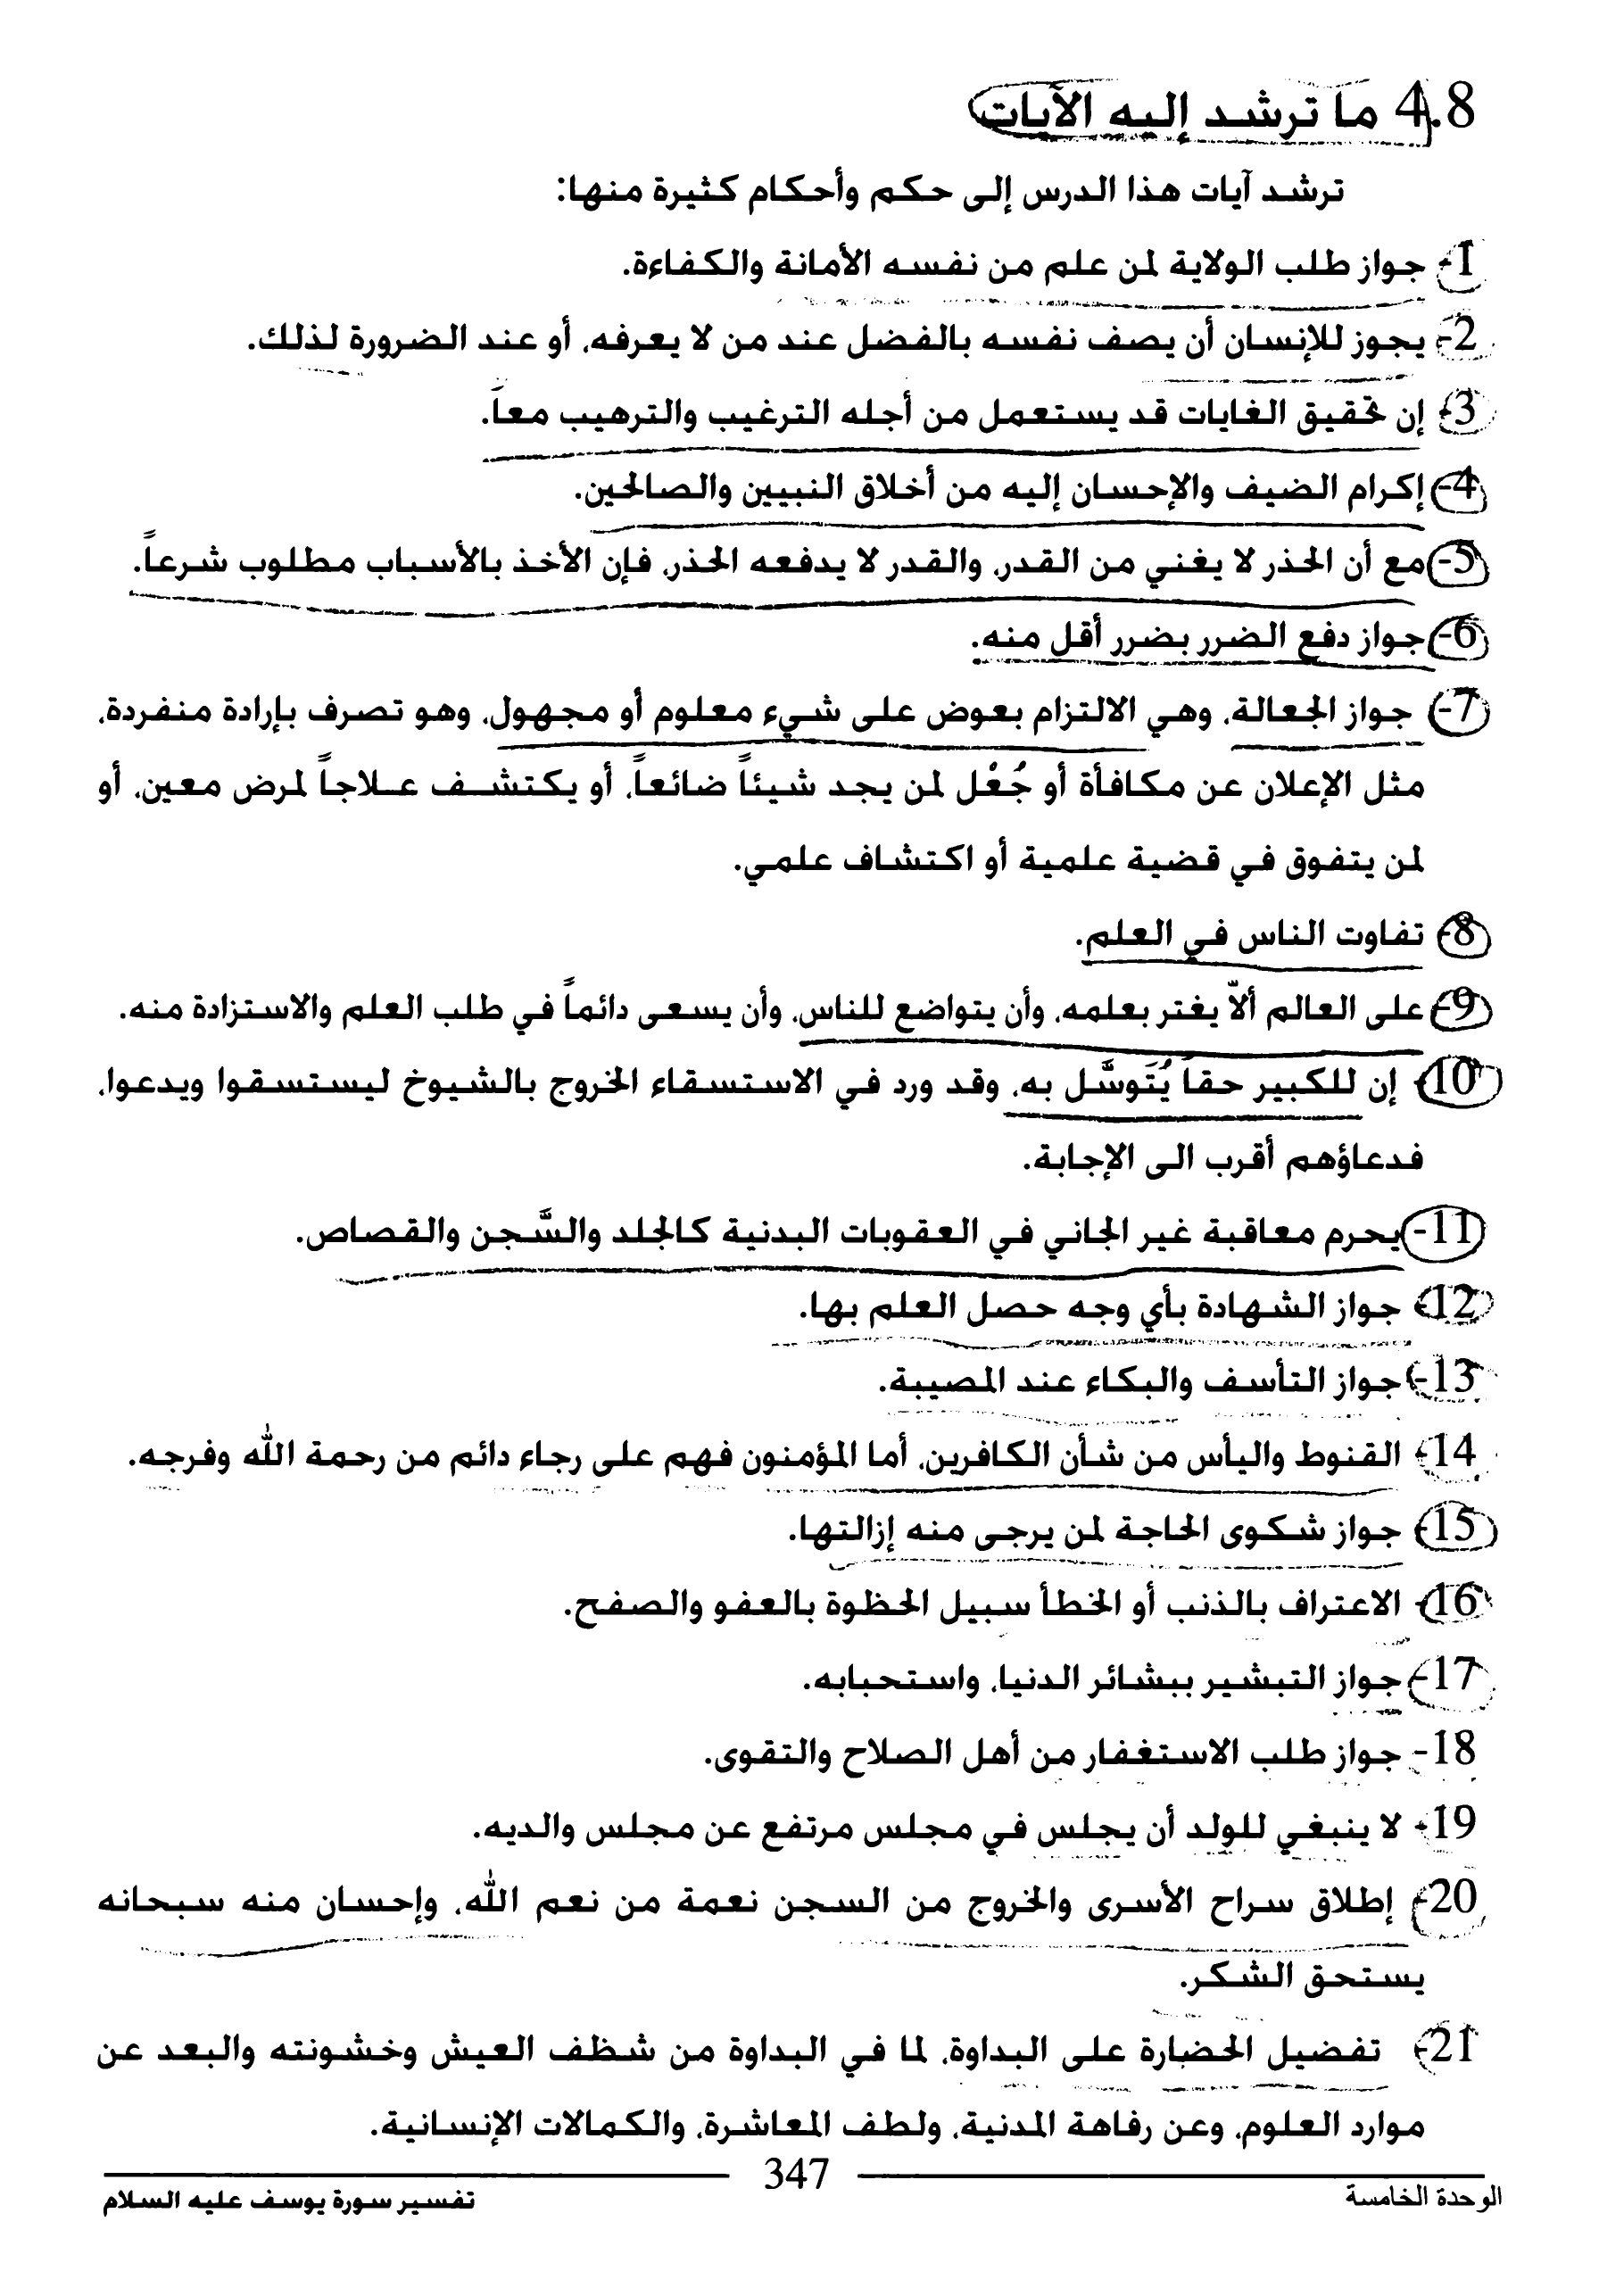 4.8 ما ترشد إليه الآيات
ترشد آيات هذا الدرس إلى حكم وأحكام كثيرة منها:
1- جواز طلب الولاية لمن علم من نفسه الأمانة والكفاءة.
2- يجوز للإنسان أن يصف نفسه بالفضل عند من لا يعرفه، أو عند الضرورة لذلك.
3- إن تحقيق الغايات قد يستعمل من أجله الترغيب والترهيب معاً.
4- إكرام الضيف والإحسان إليه من أخلاق النبيين والصالحين.
5- مع أن الحذر لا يغني من القدر، والقدر لا يدفعه الحذر، فإن الأخذ بالأسباب مطلوب شرعاً.
6- جواز دفع الضرر بضرر أقل منه.
7- جواز الجعالة، وهي الالتزام بعوض على شيء معلوم أو مجهول، وهو تصرف بإرادة منفردة،
مثل الإعلان عن مكافأة أو جُعْل لمن يجد شيئاً ضائعاً، أو يكتشف علاجاً لمرض معين، أو
لمن يتفوق في قضية علمية أو اكتشاف علمي.
8- تفاوت الناس في العلم.
9- على العالم ألاّ يغتر بعلمه، وأن يتواضع للناس، وأن يسعى دائماً في طلب العلم والاستزادة منه.
10- إن للكبير حقاً يُتَوسَّل به، وقد ورد في الاستسقاء الخروج بالشيوخ ليستسقوا ويدعوا،
فدعاؤهم أقرب الى الإجابة.
11- يحرم معاقبة غير الجاني في العقوبات البدنية كالجلد والسَّجن والقصاص.
12- جواز الشهادة بأي وجه حصل العلم بها.
13- جواز التأسف والبكاء عند المصيبة.
14- القنوط واليأس من شأن الكافرين، أما المؤمنون فهم على رجاء دائم من رحمة الله وفرجه.
15- جواز شكوى الحاجة لمن يرجى منه إزالتها.
16- الاعتراف بالذنب أو الخطأ سبيل الحظوة بالعفو والصفح.
17- جواز التبشير ببشائر الدنيا، واستحبابه.
18- جواز طلب الاستغفار من أهل الصلاح والتقوى.
19- لا ينبغي للولد أن يجلس في مجلس مرتفع عن مجلس والديه.
20- إطلاق سراح الأسرى والخروج من السجن نعمة من نعم الله، وإحسان منه سبحانه
يستحق الشكر.
21- تفضيل الحضارة على البداوة، لما في البداوة من شظف العيش وخشونته والبعد عن
موارد العلوم، وعن رفاهة المدنية، ولطف المعاشرة، والكمالات الإنسانية.
347
الوحدة الخامسة
تفسير سورة يوسف عليه السلام